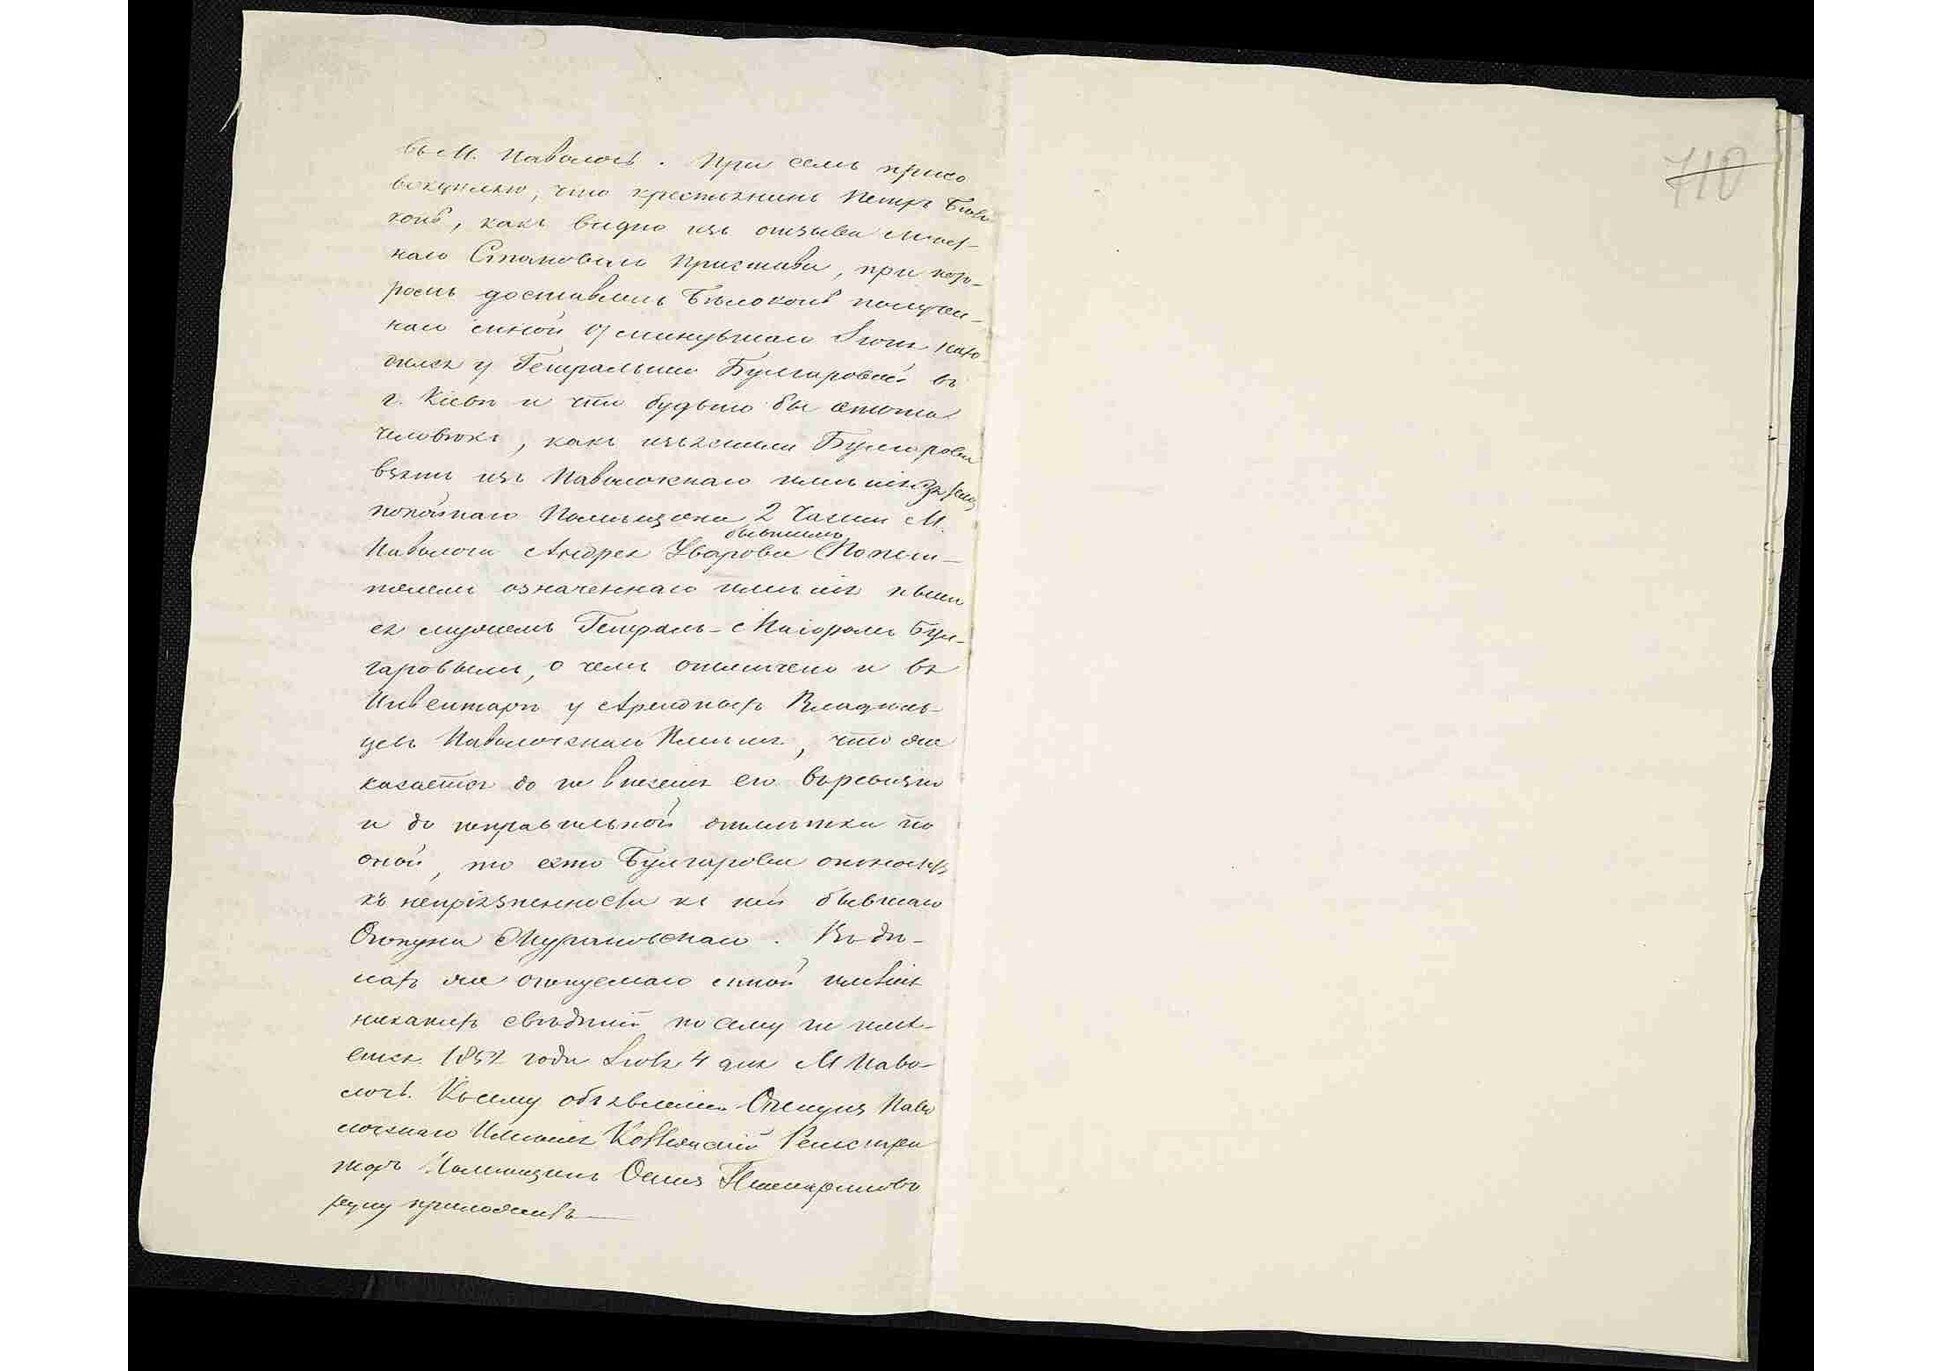 710
въ М. Паволочь. При семъ присо
вокупляю, что крестьянинъ Петръ Бѣло
конь, какъ видно изъ отзыва мѣст-
наго Становаго Пристава, при
доставленъ Бѣлоконь получен-
наго мной 9 минувшаго Іюня нахо
дился у Генеральши Булгаровой въ
г. Кіевѣ и что будьто бы
человѣкъ, какъ изъяснила Булгарова
взятъ изъ Паволочскаго имѣнія
покойнаго Помѣщика 2 Части М.
бывшимъ
Паволочи Андрея Уварова Попечи-
телемъ означеннаго имѣнія
ея мужемъ Генералъ-Маіоромъ Бул-
гаровымъ, о чемъ отмѣчено и въ
Инвентарѣ у Арендныхъ Владѣль-
цевъ Паволочскаго Имѣнія, что же
касается до не внесенія его въ ревизію
и до неправильной отмѣтки по
оной, то это Булгарова относитъ
къ непріязненности къ ней бывшаго
Опекуна. Въ дѣ-
лахъ же опекуемаго мной имѣнія
никакихъ свѣдѣній по сему не имѣ-
ется. 1857 года Іюля 4 дня М Паво-
лочь. Къ сему объявленію Опекунъ Паво
лочскаго Имѣнія Коллежскій Регистра
торъ Помѣщикъ Осипъ
руку приложилъ